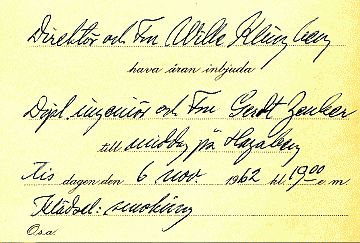 Direktör och Fru Wille Klingberg
hava äran inbjuda
Dipl. ingeniör och Fru Gerdt Zenker
till middag på Hagaberg
Tis dagen den 6 nov. 1962 kl. 19.00 e.m.
Klädsel: smoking
O.s.a.